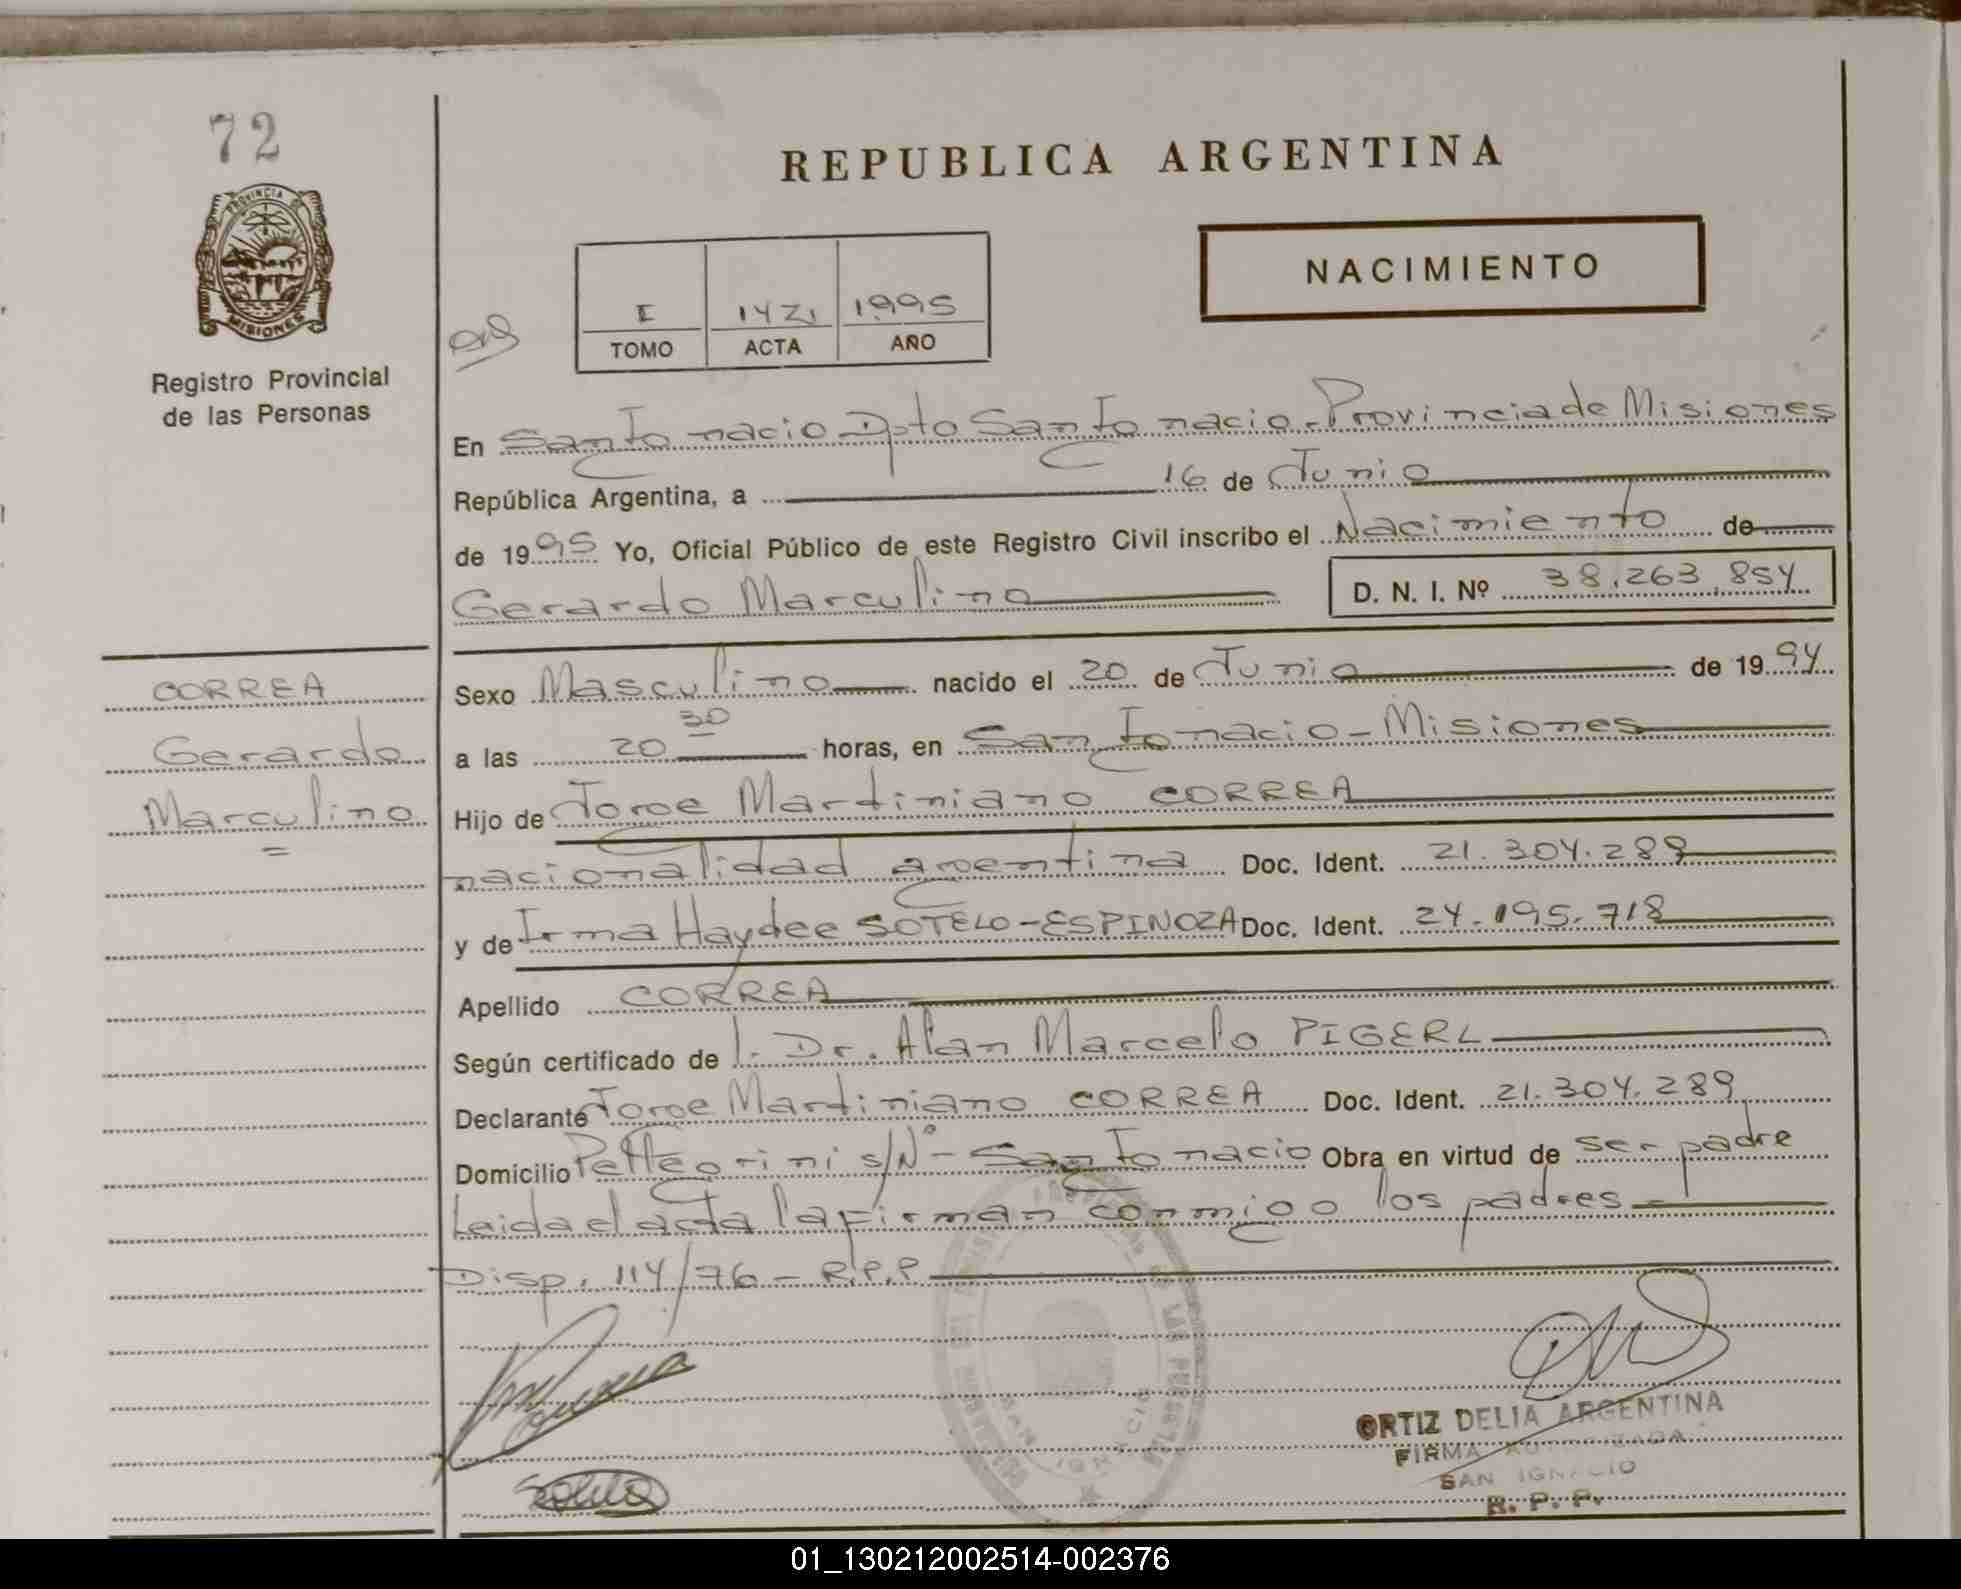 72
PROVINCIA DE
MISIONES
Registro Provincial
de las Personas
REPUBLICA ARGENTINA
NACIMIENTO
I 1421 1995
TOMO ACTA AÑO
En San Ignacio Dpto San Ignacio - Provincia de Misiones
República Argentina, a 16 de Junio
de 1995 Yo, Oficial Público de este Registro Civil inscribo el Nacimiento de
Gerardo Marculino D. N. I. Nº 38.263.854
CORREA
Gerardo
Marculino
Sexo Masculino nacido el 20 de Junio de 1994
a las 20 30 horas, en San Ignacio - Misiones
Hijo de Jorge Martiniano CORREA
nacionalidad argentina Doc. Ident. 21.304.289
y de Irma Haydee SOTELO-ESPINOZA Doc. Ident. 24.195.718
Apellido CORREA
Según certificado de l. Dr. Alan Marcelo PIGERL
Declarante Jorge Martiniano CORREA Doc. Ident. 21.304.289
Domicilio Pellegrini s/Nº - San Ignacio Obra en virtud de ser padre
Leida el acta la firman conmigo los padres
Disp. 114/76 - R.P.P
SAN IGNACIO
Sotelo
ORTIZ DELIA ARGENTINA
FIRMA AUTORIZADA
SAN IGNACIO
R. P. P.
01_130212002514-002376